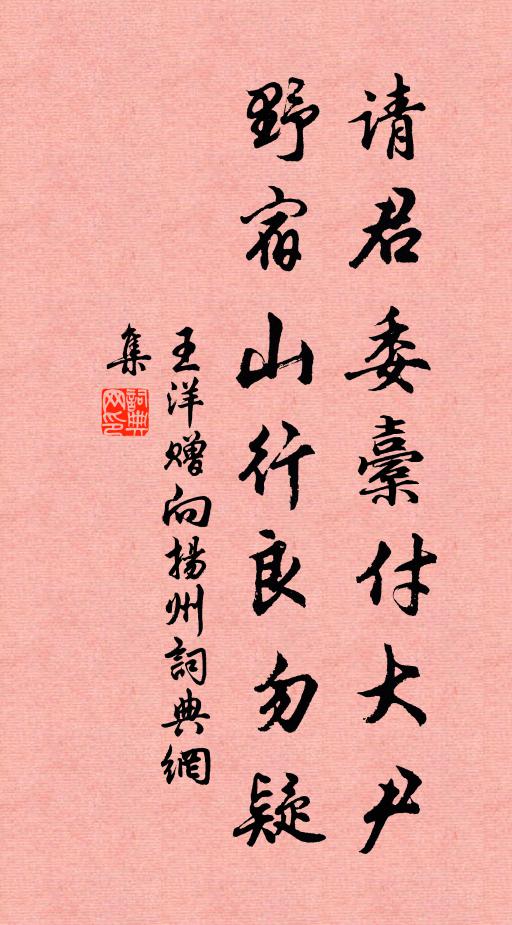 请君委橐付大尹
野宿山行良勿疑
王洋赠向扬州詞典網
集
詞典網印